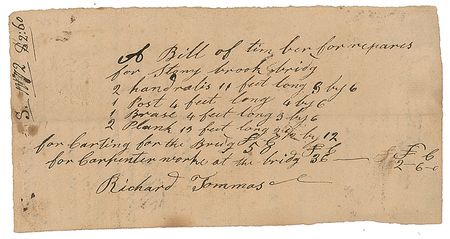 A Bill of tim ber for repares
for Stony brook bridg
2 handralis 11 feet long 3 by 6
1 Post 4 feet long 4 by 6
1 Brase 4 feet long 3 by
2 Plank 12 feet long by 12
for Carting for the Bridg
for Carpenter worke at the bridg 36
2-6-0
Richard Tommas